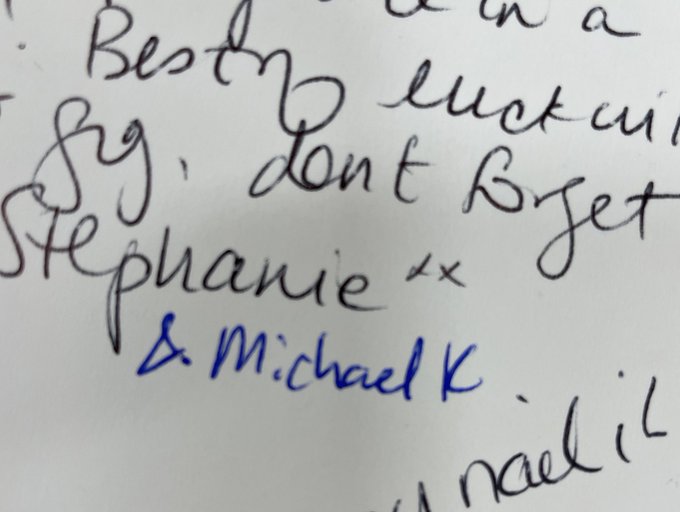 in a
Best of luck wi
fig, dont forget
Stephanie xx
& Michael K
nail it